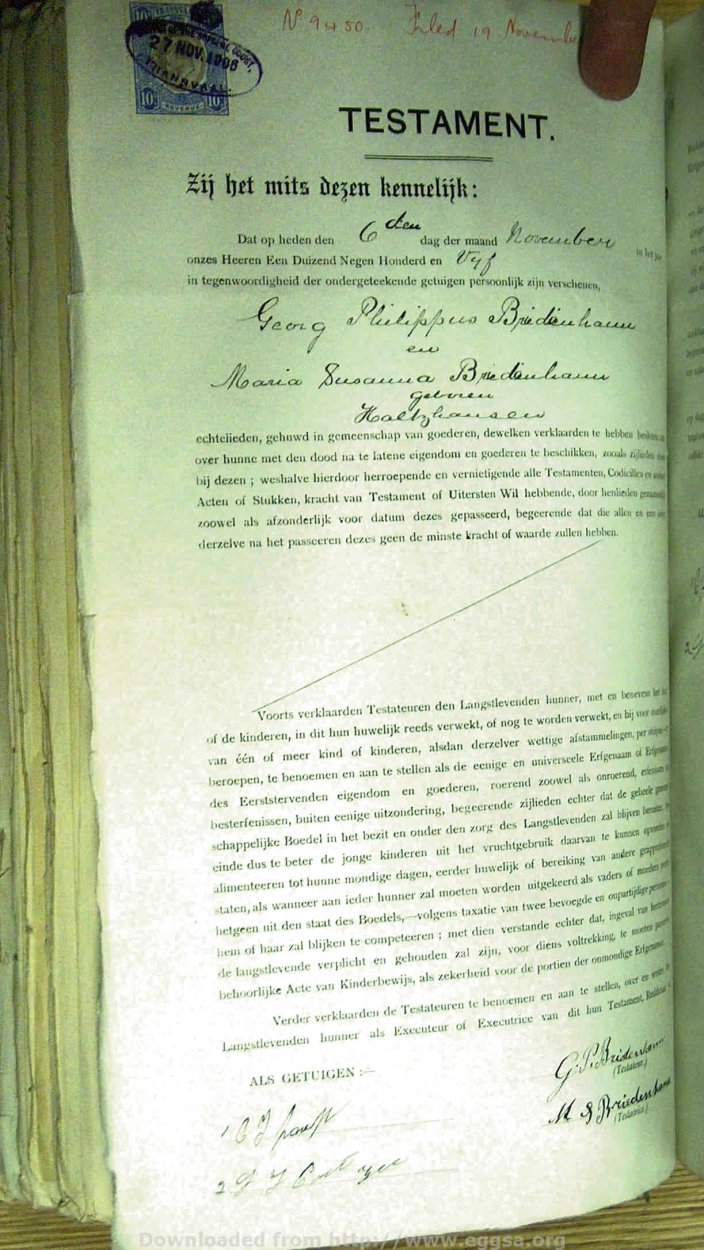 No 9450 Filed 19 November
27 NOV. 1906
TRANSVAAL.
10/ REVENUE 10/
TESTAMENT.
Zij het mits dezen kennelijk:
Dat op heden den 6den dag der maand November in het jaar
onzes Heeren Een Duizend Negen Honderd en Vyf
in tegenwoordigheid der ondergeteekende getuigen persoonlijk zijn verschenen,
Georg Philippus Briedenhann
en
Maria Susanna Briedenhann
geboren
Holtzhausen
echtelieden, gehuwd in gemeenschap van goederen, dewelken verklaarden te hebben besloten
over hunne met den dood na te latene eigendom en goederen te beschikken, zooals zijlieden doen
bij dezen; weshalve hierdoor herroepende en vernietigende alle Testamenten, Codicillen en andere
Acten of Stukken, kracht van Testament of Uitersten Wil hebbende, door henlieden gezamenlijk
zoowel als afzonderlijk voor datum dezes gepasseerd, begeerende dat die allen en een ieder
derzelve na het passeeren dezes geen de minste kracht of waarde zullen hebben.
Voorts verklaarden Testateuren den Langstlevenden hunner, met en benevens het
of de kinderen, in dit hun huwelijk reeds verwekt, of nog te worden verwekt, en bij voor
van één of meer kind of kinderen, alsdan derzelver wettige afstammelingen, per stirpes,
beroepen, te benoemen en aan te stellen als de eenige en universeele Erfgenaam of Erfgenamen
des Eerststervenden eigendom en goederen, roerend zoowel als onroerend,
besterfenissen, buiten eenige uitzondering, begeerende zijlieden echter dat de geheele gemeen-
schappelijke Boedel in het bezit en onder den zorg des Langstlevenden zal blijven
einde dus te beter de jonge kinderen uit het vruchtgebruik daarvan te kunnen opvoeden
alimenteeren tot hunne mondige dagen, eerder huwelijk of bereiking van andere geapprobeerde
staten, als wanneer aan ieder hunner zal moeten worden uitgekeerd als vaders of moeders
hetgeen uit den staat des Boedels,—volgens taxatie van twee bevoegde en onpartijdige personen
hem of haar zal blijken te competeeren; met dien verstande echter dat, ingeval van
de langstlevende verplicht en gehouden zal zijn, voor diens voltrekking, te moeten passeeren
behoorlijke Acte van Kinderbewijs, als zekerheid voor de portien der onmondige Erfgenamen.
Verder verklaarden de Testateuren te benoemen en aan te stellen, over en weder,
Langstlevenden hunner als Executeur of Executrice van dit hun Testament,
ALS GETUIGEN:—
G. P. Briedenhann
(Testateur.)
M S Briedenhann
(Testatrice.)
1
2
Downloaded from http://www.eggsa.org